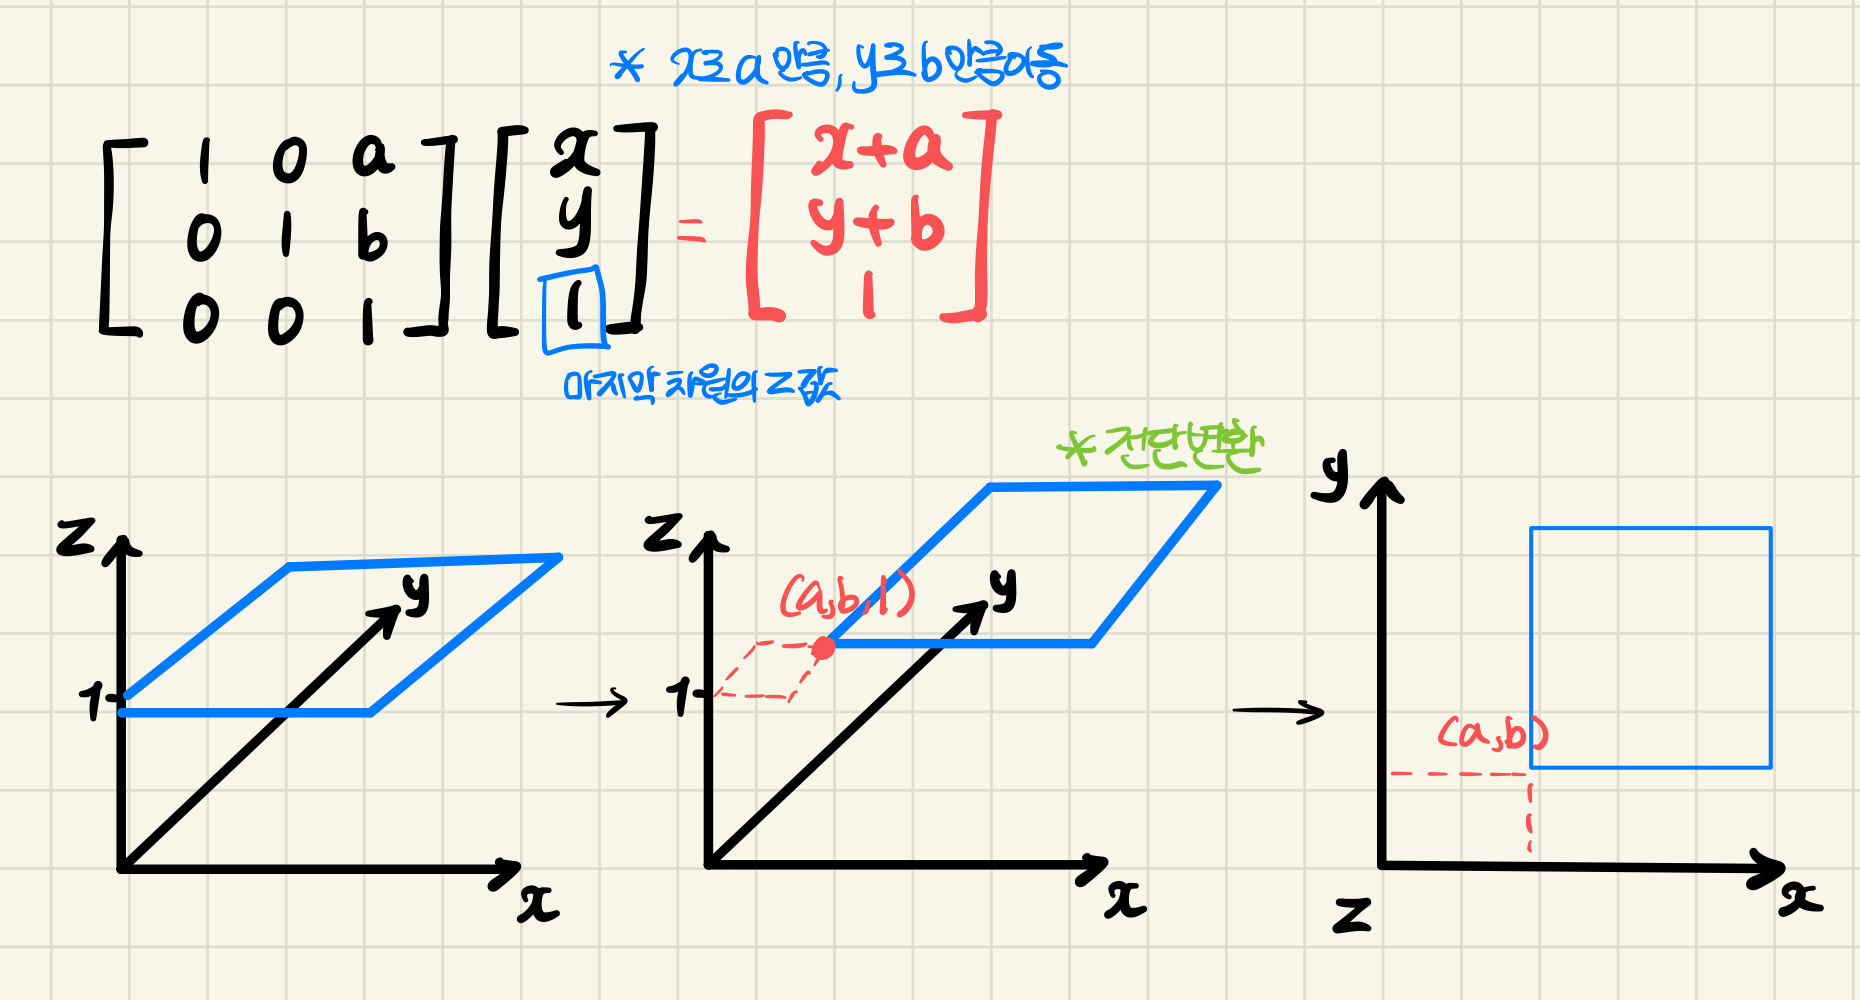 * x로 a만큼, y로 b만큼 이동
[1 0 a] [x] = [x+a]
[0 1 b] [y] [y+b]
[0 0 1] [1] [1]
마지막 차원의 z값
* 전단변환
z y 1 x →
z (a,b,1) y 1 x →
y (a,b) z x